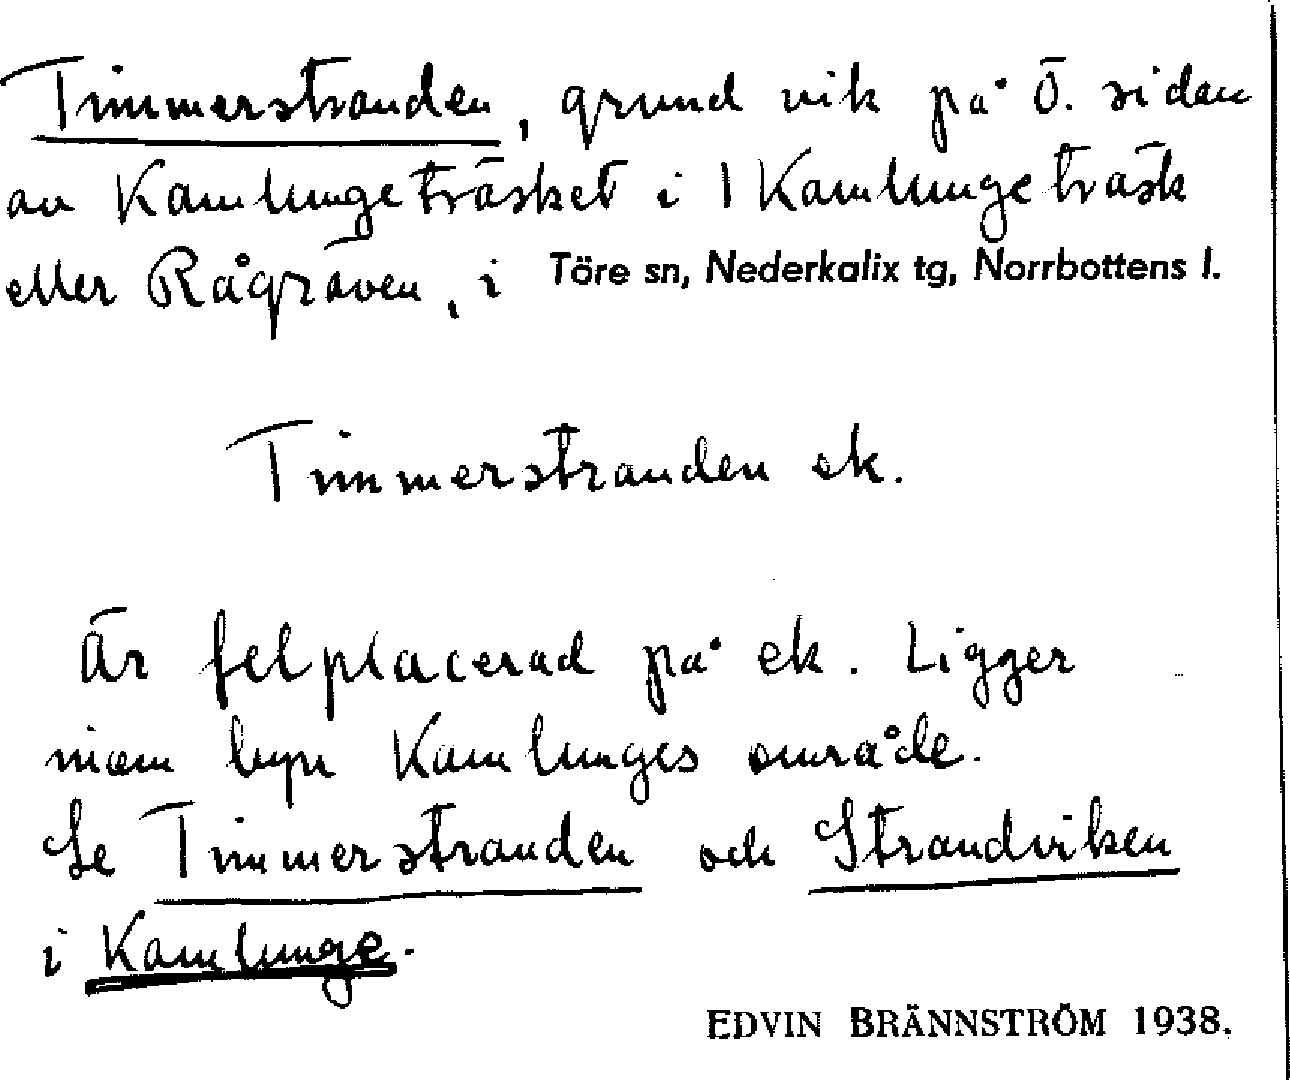 Timmerstranden, grund vik på ö. sidan
av Kamlungeträsket i 1 Kamlungeträsk
eller Rågräven, i Töre sn, Nederkalix tg, Norrbottens l.
Timmerstranden ek.
Är felplacerad på ek. Ligger
inom byn Kamlunges område.
Se Timmerstranden och Strandviken
i Kamlunge.
EDVIN BRÄNNSTRÖM 1938.